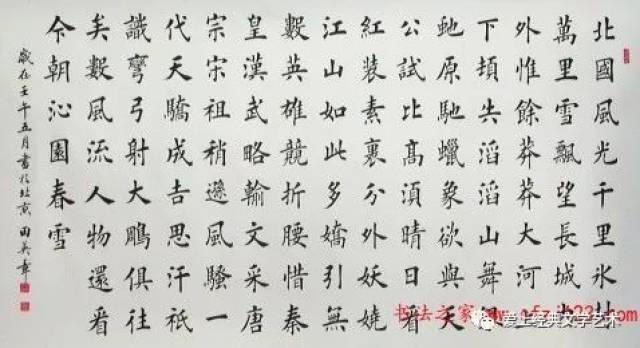 北國風光千里冰封
萬里雪飄望長城
外惟餘莽莽大河上
下頓失滔滔山舞
虵原馳蠟象欲與天
公試比高須晴日看
紅裝素裹分外妖嬈
江山如此多嬌引無
數英雄競折腰惜秦
皇漢武略輸文采唐
宗宋祖稍遜風騷一
代天驕成吉思汗衹
識彎弓射大鵰俱往
矣數風流人物還看
今朝沁園春雪
歲在壬午五月書於北京田英章
书法之家
爱上经典文学艺术